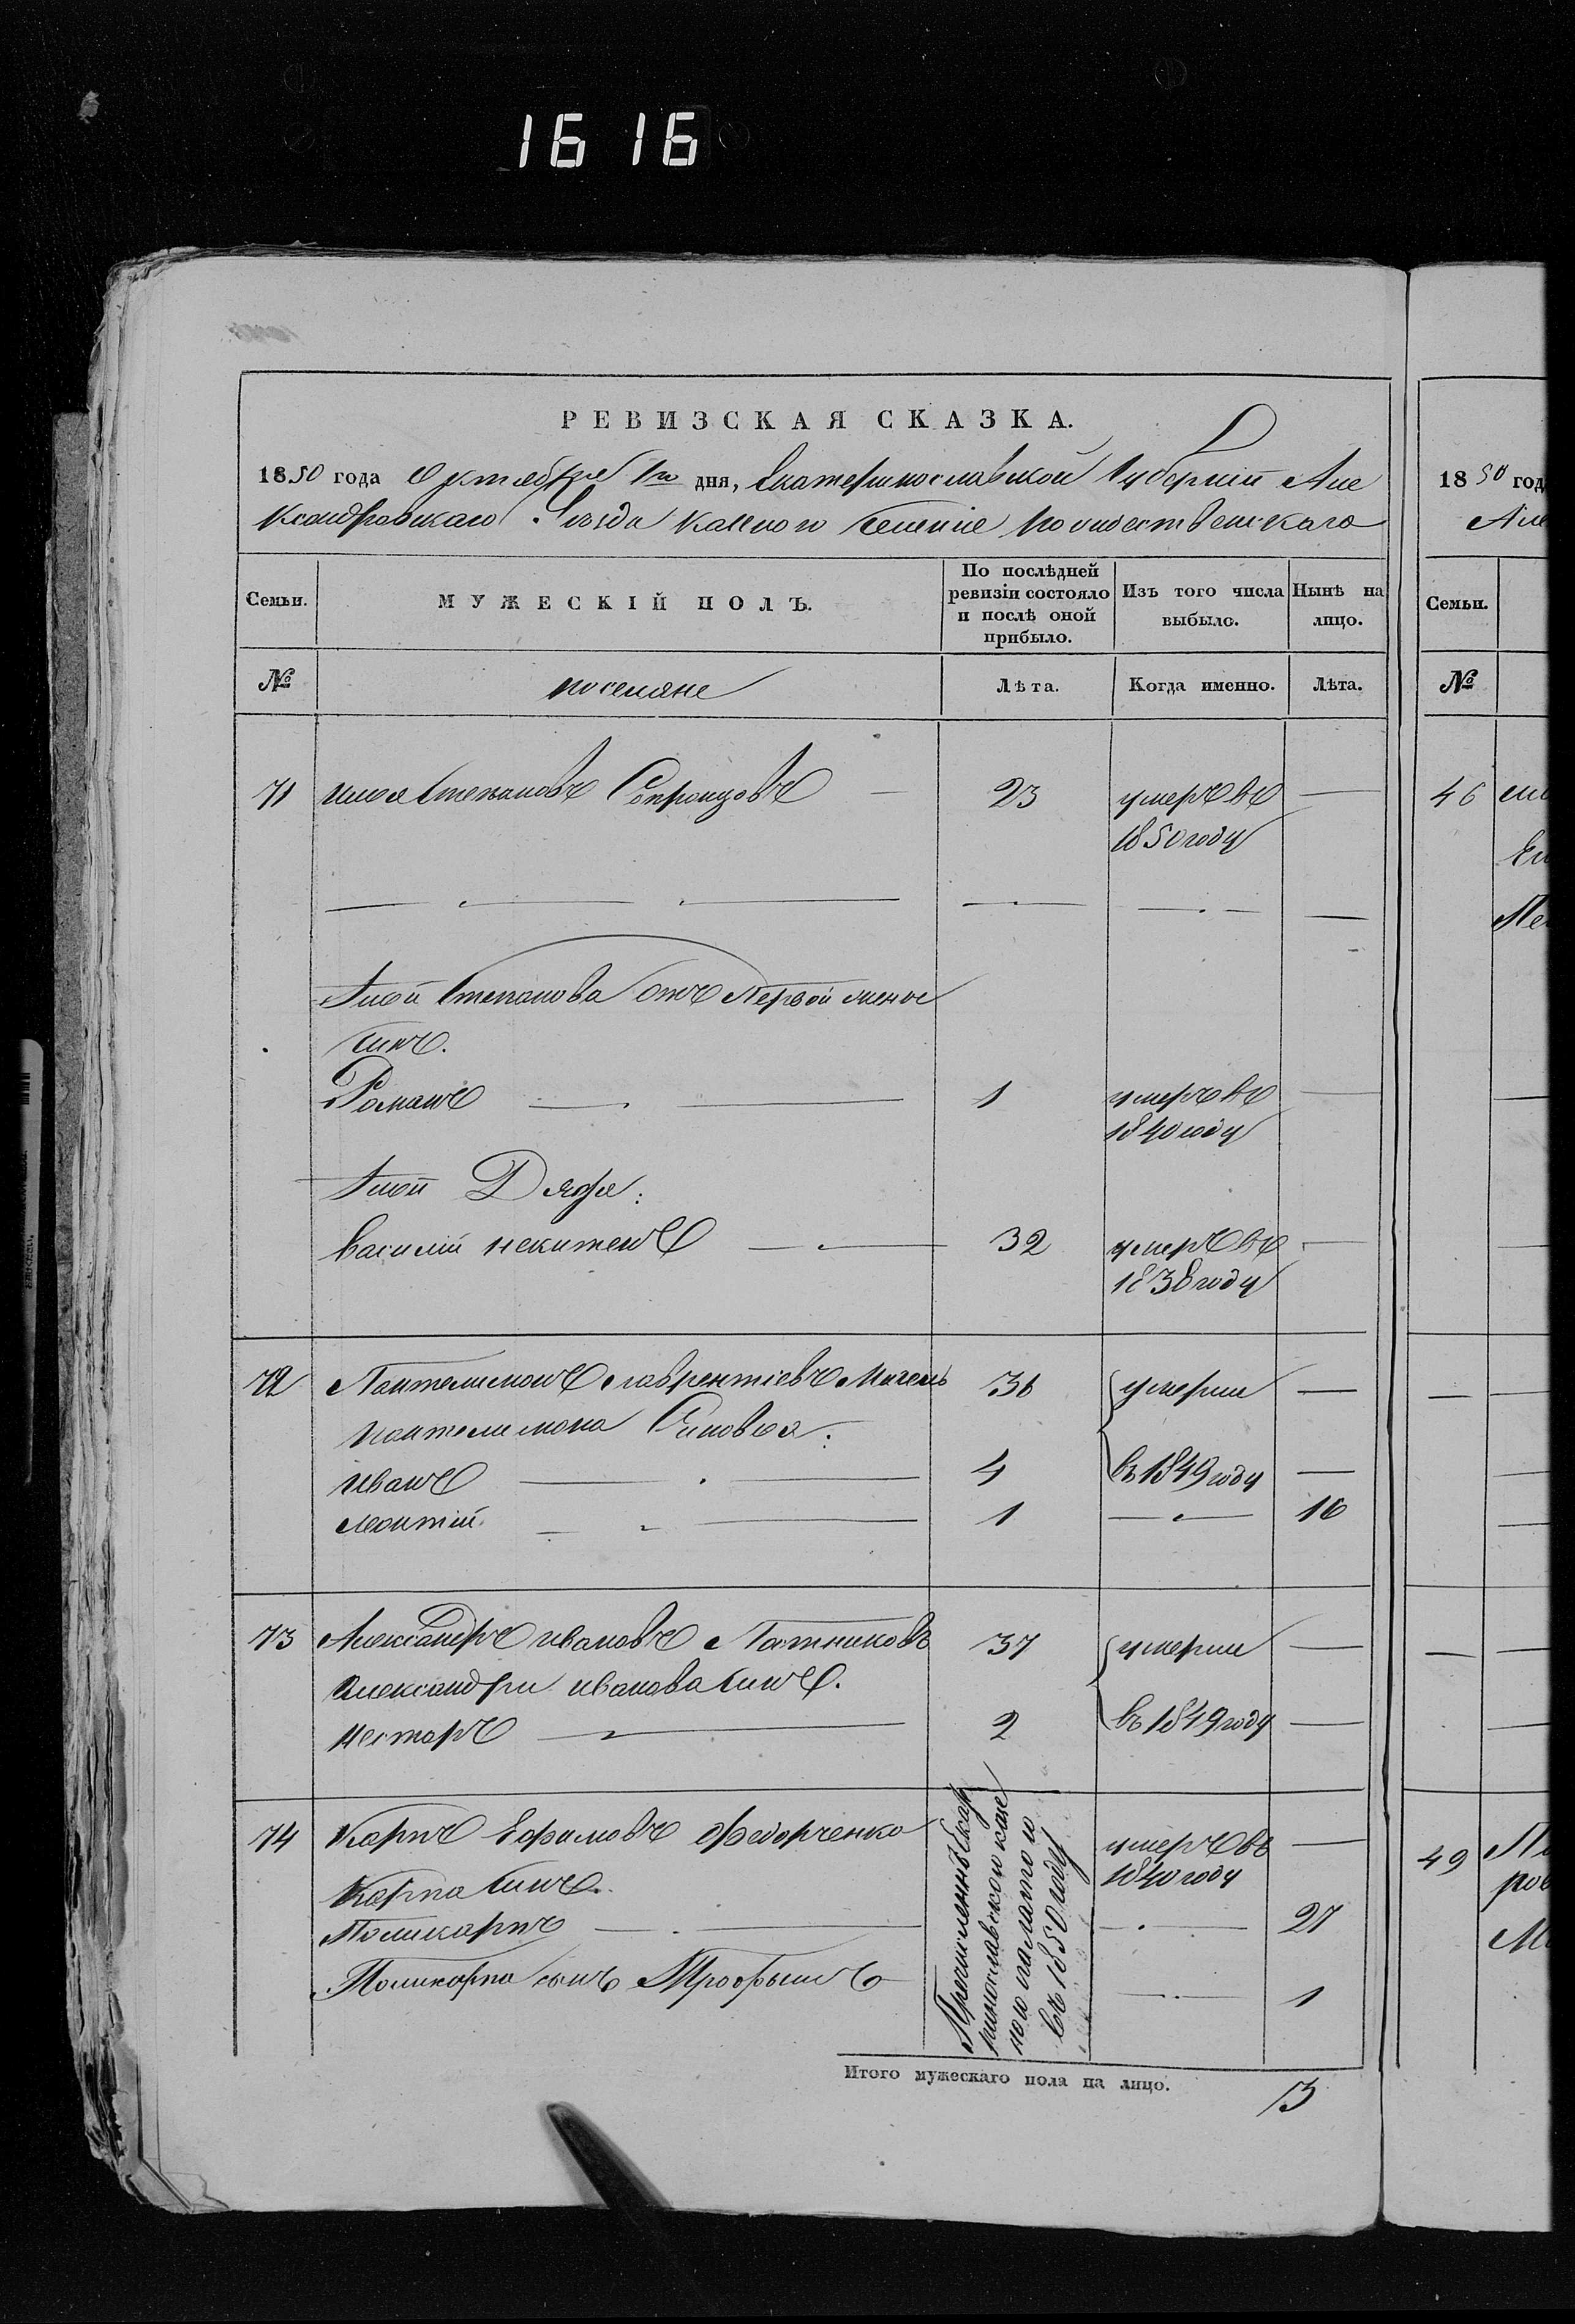 16 16
РЕВИЗСКАЯ СКАЗКА.
1850 года Октября 1го дня, Екатеринославской Губерніи Але
ксандровскаго Уѣзда казеного Селенія Рождественскаго
Семьи.
МУЖЕСКІЙ ПОЛЪ.
По послѣдней ревизіи состояло и послѣ оной прибыло.
Изъ того числа выбыло.
Нынѣ на лицо.
№
поселяне
Лѣта.
Когда именно.
Лѣта.
71 Илья Степановъ 23 умеръ въ —
1850 году
Ильи Степанова отъ Первой жены
сынъ.
Романъ — 1 умеръ въ —
1840 году
Ильи Дядя:
Василий Никитенъ — 32 умеръ въ —
1838 году
72 Пантелимонъ Лаврентіевъ 36 умерли —
Пантелимона Сыновья:
Иванъ — 4 въ 1849 году —
Леонтій — 1 — 16
73 Александръ Ивановъ Латниковъ 37 умерли —
Александры Иванова сынъ.
Нестеръ — 2 въ 1849 году —
74 Карпъ Ефимовъ Федорченко умеръ въ —
1840 году
Карпа сынъ.
Поликарпъ — 27
Поликарпа сынъ Трофымъ — 1
Причисленны Екатe
ринославской казе
ною палатою
въ 1850 году
Итого мужескаго пола на лицо. 3
1850 год
Але
Семьи.
№
46
49